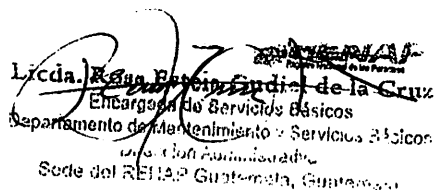 RENAP
Licda. Rosa Estela Gudiel de la Cruz
Encargada de Servicios Básicos
Departamento de Mantenimiento y Servicios Básicos
Dirección Administrativa
Sede del RENAP Guatemala, Guatemala